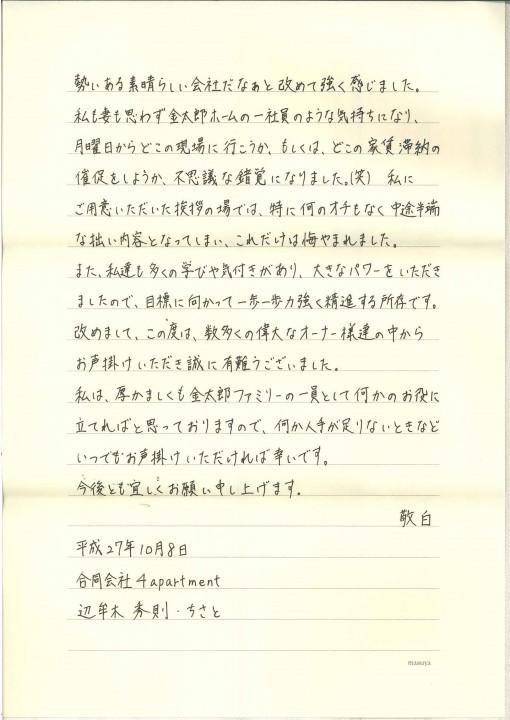 勢いある素晴らしい会社だなぁと改めて強く感じました。
私も妻も思わず金太郎ホームの一社員のような気持ちになり、
月曜日からどこの現場に行こうか、もしくは、どこの家賃滞納の
催促をしようか、不思議な錯覚になりました。(笑) 私に
ご用意いただいた挨拶の場では、特に何のオチもなく中途半端
な拙い内容となってしまい、これだけは悔やまれました。
また、私達も多くの学びや気付きがあり、大きなパワーをいただき
ましたので、目標に向かって一歩一歩力強く精進する所存です。
改めまして、この度は、数多くの偉大なオーナー様達の中から
お声掛けいただき誠に有難うございました。
私は、厚かましくも金太郎ファミリーの一員として何かのお役に
立てればと思っておりますので、何か人手が足りないときなど
いつでもお声掛けいただければ幸いです。
今後とも宜しくお願い申し上げます。
敬白
平成27年10月8日
合同会社4apartment
辺牟木 秀則・ちさと
masuya